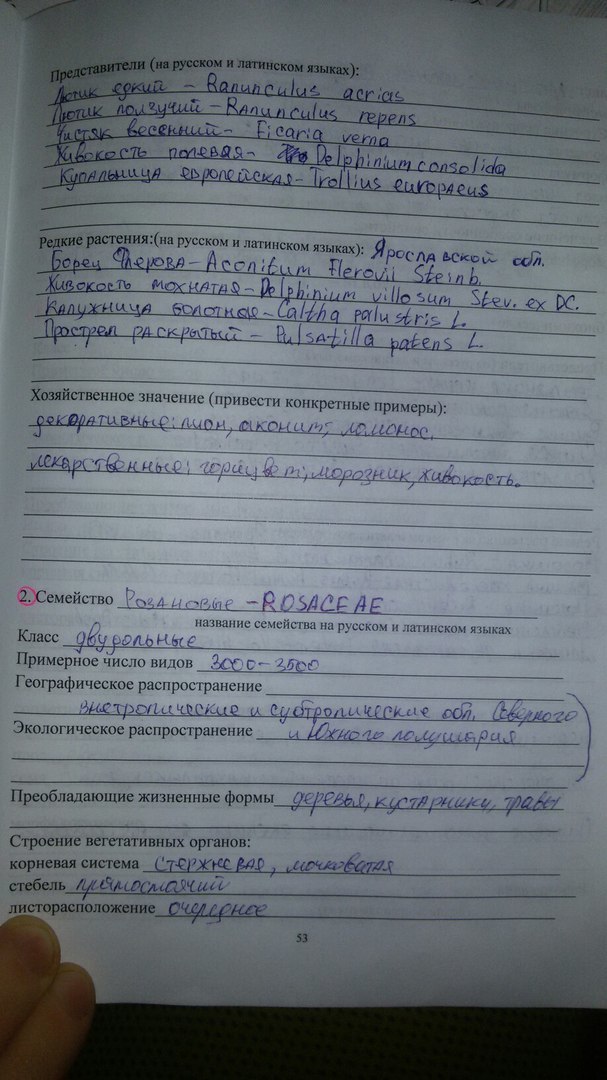 Представители (на русском и латинском языках):
Лютик едкий – Ranunculus acrias
Лютик ползучий – Ranunculus repens
Чистяк весенний – Ficaria verna
Живокость полевая – Delphinium consolida
Купальница европейская – Trollius europaeus
Редкие растения:(на русском и латинском языках): Ярославской обл.
Борец Флерова – Aconitum Flerovii Steinb.
Живокость мохнатая – Delphinium villosum Stev. ex DC.
Калужница болотная – Caltha palustris L.
Прострел раскрытый – Pulsatilla patens L.
Хозяйственное значение (привести конкретные примеры):
декоративные: пион, аконит, ломонос.
лекарственные: горицвет, морозник, живокость.
2. Семейство Розановые – ROSACEAE
название семейства на русском и латинском языках
Класс двудольные
Примерное число видов 3000–3500
Географическое распространение
внетропические и субтропические обл. Северного
Экологическое распространение и Южного полушария
Преобладающие жизненные формы деревья, кустарники, травы
Строение вегетативных органов:
корневая система стержневая, мочковатая
стебель прямостоячий
листорасположение очередное
53